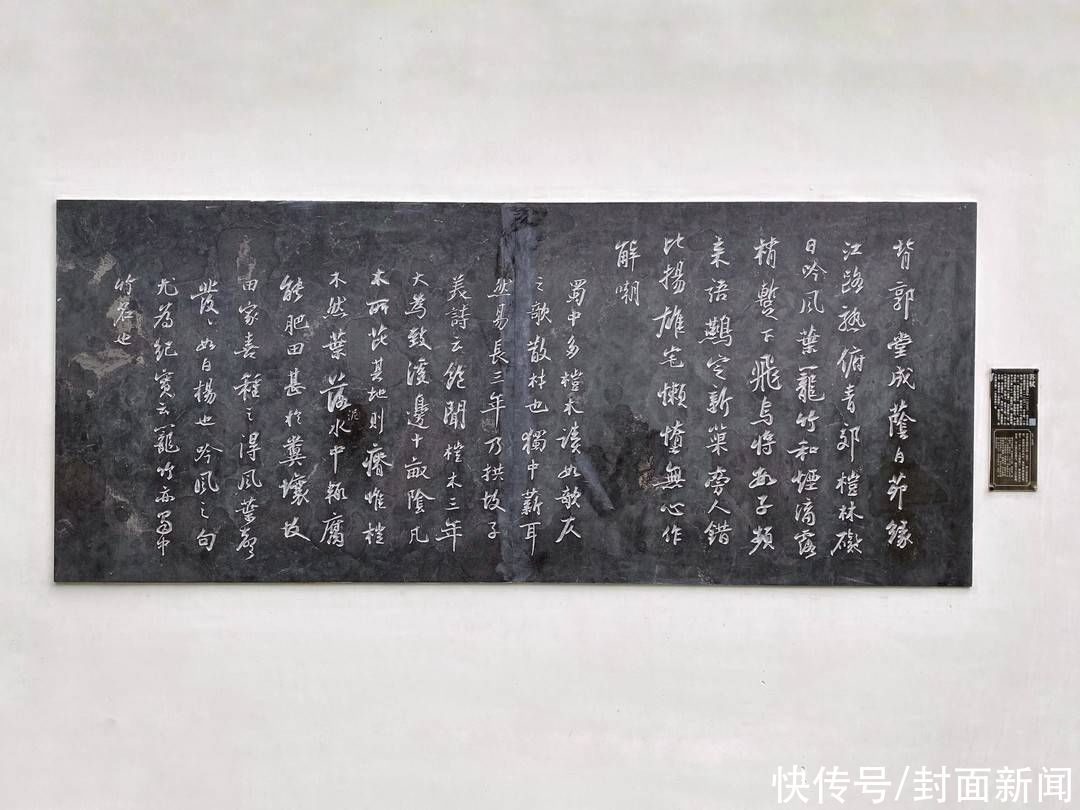 背郭堂成蔭白茆緣
江路熟俯青郊榿林礙
日吟風葉籠竹和煙滴露
梢暫下飛烏將數子頻
來語鷰定新巢旁人錯
比揚雄宅懶惰無心作
解嘲
蜀中多榿木讀如欹仄
之欹散材也獨中薪耳
然易長三年乃拱故子
美詩云飽聞榿木三年
大為致溪邊十畝陰凡
木所芘其地則瘠惟榿
不然葉落泥水中輒腐
能肥田甚於糞壤故
田家喜種之得風葉聲
發發如白楊也吟風之句
尤為紀實云籠竹亦蜀中
竹名也
快传号/封面新闻